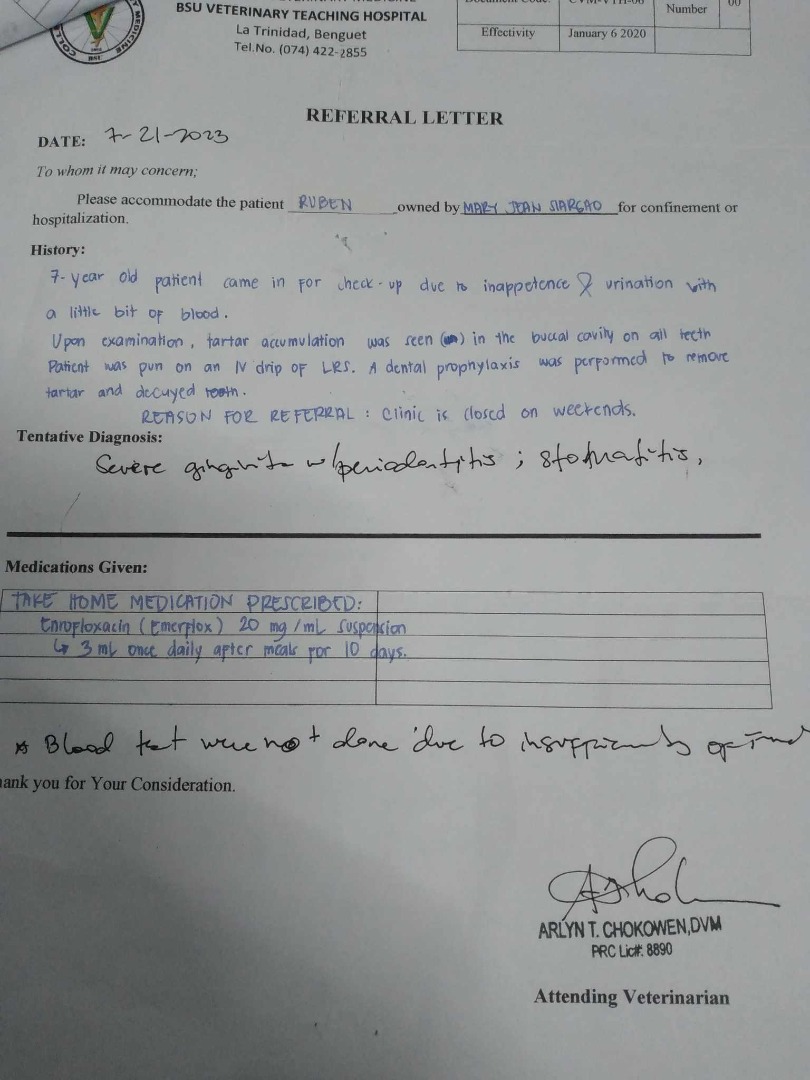 BSU VETERINARY TEACHING HOSPITAL
La Trinidad, Benguet
Tel.No. (074) 422-2855
Number 00
Effectivity January 6 2020
REFERRAL LETTER
DATE: 7-21-2023
To whom it may concern;
Please accommodate the patient RUBEN owned by MARY JEAN SIARGAO for confinement or
hospitalization.
History:
7-year old patient came in for check-up due to inappetence & urination with
a little bit of blood.
Upon examination, tartar accumulation was seen in the buccal cavity on all teeth
Patient was pun on an IV drip of LRS. A dental prophylaxis was performed to remove
tartar and decayed teeth.
REASON FOR REFERRAL: Clinic is closed on weekends.
Tentative Diagnosis:
Severe gingivitis w/periodontitis; stomatitis,
Medications Given:
TAKE HOME MEDICATION PRESCRIBED:
Enrofloxacin (Emerflox) 20 mg/mL suspension
↳ 3 mL once daily after meals for 10 days.
* Blood test were not done due to insufficiently of
ank you for Your Consideration.
ARLYN T. CHOKOWEN, DVM
PRC Lic#. 8890
Attending Veterinarian